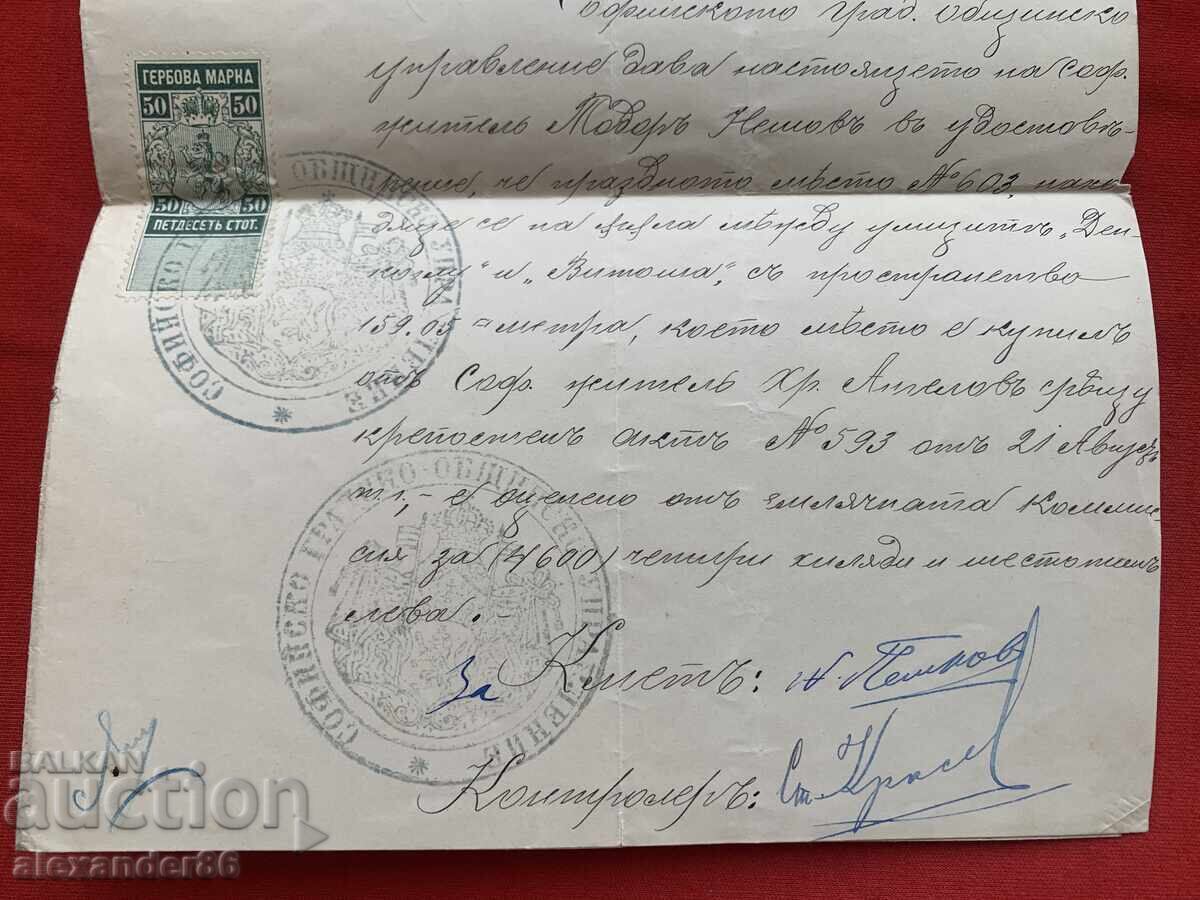 ГЕРБОВА МАРКА
50 50
50 50
ПЕТДЕСЕТЬ СТОТ.
Софийското Град. Общинско
управление дава настоящето на Соф.
жител Тодоръ Нешовъ в удостове-
рение, че праздното место № 603, нахо-
дяще се на ъгъла между улицитѣ "Ден-
" и "Витоша", съ пространство
159.05 □ метра, което место е купилъ
отъ Соф. жителъ Хр. Ангеловъ срещу
крепостенъ актъ № 593 отъ 21 Августъ
т. г., - е оценено отъ комми-
сия за (4600) четири хиляди и шестотинъ
лева. -
за Кметъ: Н. Пешковъ
Контролеръ: Ст.
СОФИЙСКО ГРАДСКО-ОБЩИНСКО УПРАВЛЕНИЕ
СОФИЙСКО ГРАДСКО-ОБЩИНСКО УПРАВЛЕНИЕ
BALKAN
Auction
alexander86